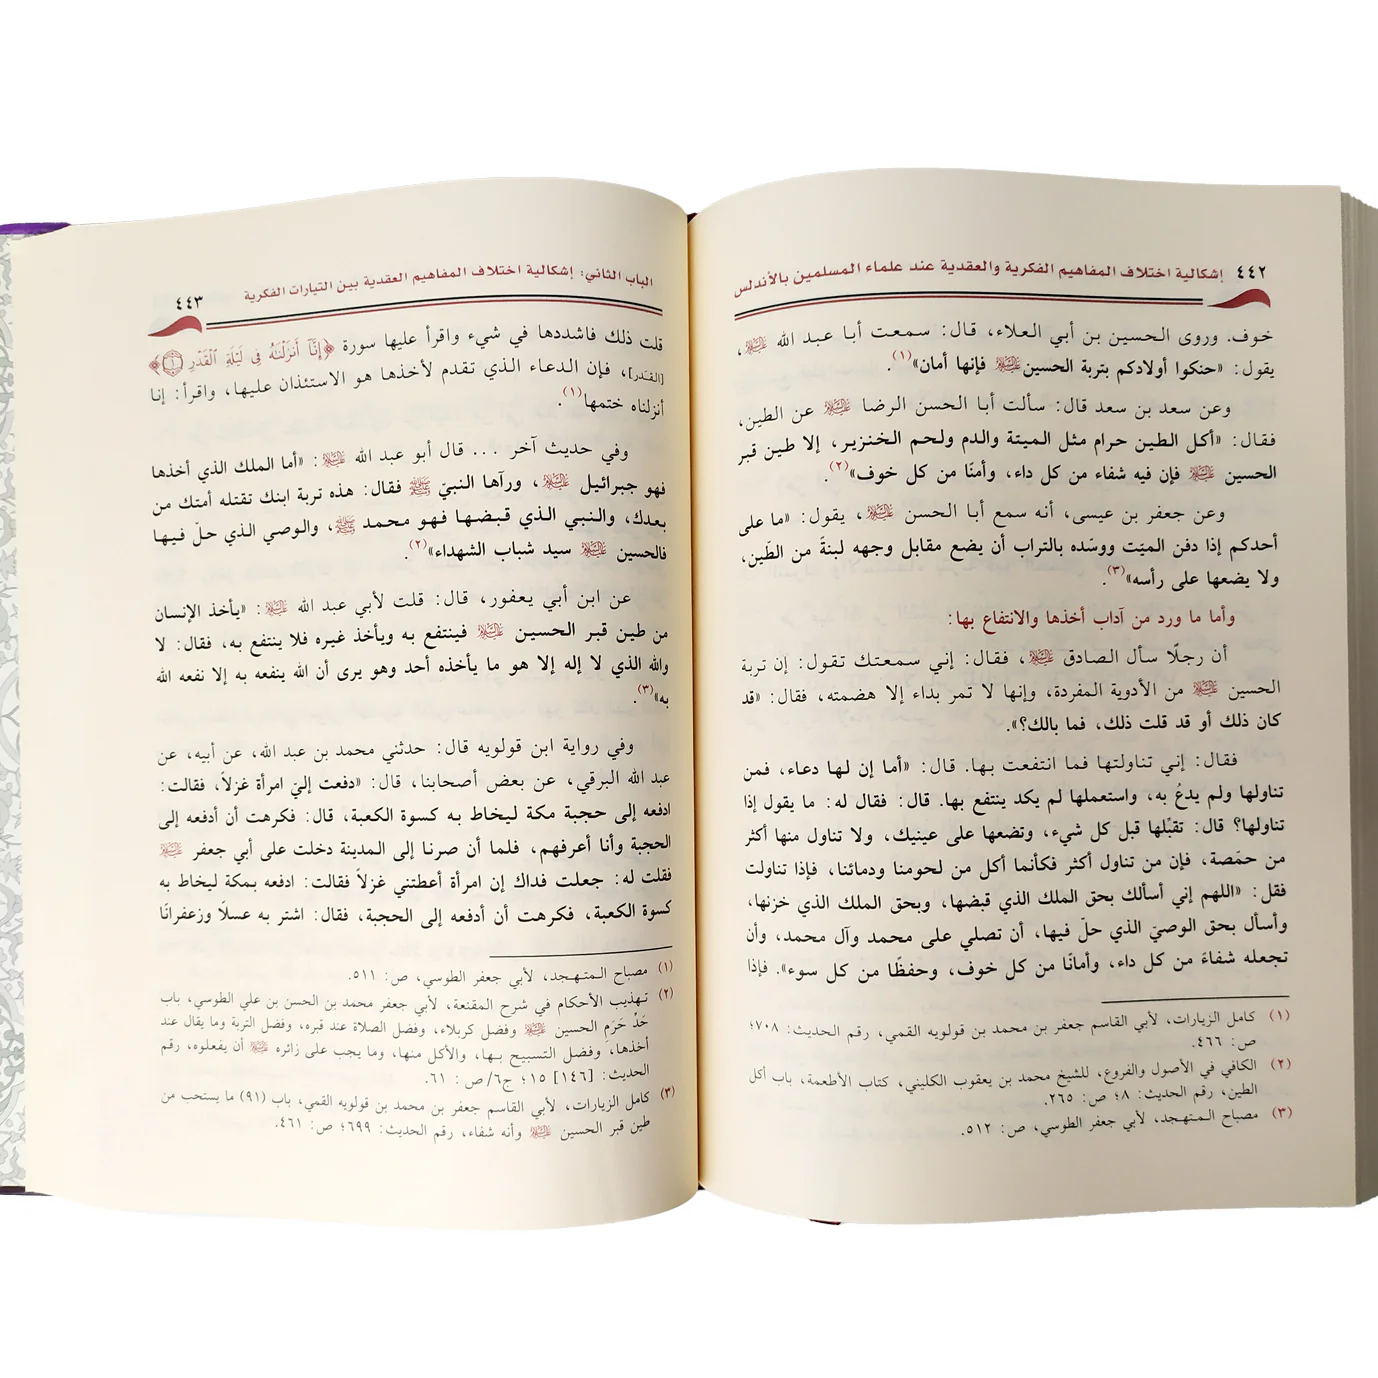 ٤٤٢ إشكالية اختلاف المفاهيم الفكرية والعقدية عند علماء المسلمين بالأندلس
خوف. وروى الحسين بن أبي العلاء، قال: سمعت أبا عبد الله عليه السلام،
يقول: «حنكوا أولادكم بتربة الحسين عليه السلام فإنها أمان»(١).
وعن سعد بن سعد قال: سألت أبا الحسن الرضا عليه السلام عن الطين،
فقال: «أكل الطين حرام مثل الميتة والدم ولحم الخنزير، إلا طين قبر
الحسين عليه السلام فإن فيه شفاء من كل داء، وأمنًا من كل خوف»(٢).
وعن جعفر بن عيسى، أنه سمع أبا الحسن عليه السلام، يقول: «ما على
أحدكم إذا دفن الميّت ووسّده بالتراب أن يضع مقابل وجهه لبنةً من الطّين،
ولا يضعها على رأسه»(٣).
وأما ما ورد من آداب أخذها والانتفاع بها:
أن رجلًا سأل الصادق عليه السلام، فقال: إني سمعتك تقول: إن تربة
الحسين عليه السلام من الأدوية المفردة، وإنها لا تمر بداء إلا هضمته، فقال: «قد
كان ذلك أو قد قلت ذلك، فما بالك؟».
فقال: إني تناولتها فما انتفعت بها. قال: «أما إن لها دعاء، فمن
تناولها ولم يدعُ به، واستعملها لم يكد ينتفع بها. قال: فقال له: ما يقول إذا
تناولها؟ قال: تقبّلها قبل كل شيء، وتضعها على عينيك، ولا تناول منها أكثر
من حمّصة، فإن من تناول أكثر فكأنما أكل من لحومنا ودمائنا، فإذا تناولت
فقل: «اللهم إني أسألك بحق الملك الذي قبضها، وبحق الملك الذي خزنها،
وأسأل بحق الوصيّ الذي حلّ فيها، أن تصلي على محمد وآل محمد، وأن
تجعله شفاءً من كل داء، وأمانًا من كل خوف، وحفظًا من كل سوء». فإذا
(١) كامل الزيارات، لأبي القاسم جعفر بن محمد بن قولويه القمي، رقم الحديث: ٧٠٨؛
ص: ٤٦٦.
(٢) الكافي في الأصول والفروع، للشيخ محمد بن يعقوب الكليني، كتاب الأطعمة، باب أكل
الطين، رقم الحديث: ٨؛ ص: ٢٦٥.
(٣) مصباح المتهجد، لأبي جعفر الطوسي، ص: ٥١٢.
الباب الثاني: إشكالية اختلاف المفاهيم العقدية بين التيارات الفكرية ٤٤٣
قلت ذلك فاشددها في شيء واقرأ عليها سورة ﴿إِنَّآ أَنزَلْنَٰهُ فِى لَيْلَةِ ٱلْقَدْرِ ١﴾
[القدر]، فإن الدعاء الذي تقدم لأخذها هو الاستئذان عليها، واقرأ: إنا
أنزلناه ختمها(١).
وفي حديث آخر ... قال أبو عبد الله عليه السلام: «أما الملك الذي أخذها
فهو جبرائيل عليه السلام، ورآها النبيّ ﷺ فقال: هذه تربة ابنك تقتله أمتك من
بعدك، والنبي الذي قبضها فهو محمد ﷺ، والوصي الذي حلّ فيها
فالحسين عليه السلام سيد شباب الشهداء»(٢).
عن ابن أبي يعفور، قال: قلت لأبي عبد الله عليه السلام: «يأخذ الإنسان
من طين قبر الحسين عليه السلام فينتفع به ويأخذ غيره فلا ينتفع به، فقال: لا
والله الذي لا إله إلا هو ما يأخذه أحد وهو يرى أن الله ينفعه به إلا نفعه الله
به»(٣).
وفي رواية ابن قولويه قال: حدثني محمد بن عبد الله، عن أبيه، عن
عبد الله البرقي، عن بعض أصحابنا، قال: «دفعت إليّ امرأة غزلاً، فقالت:
ادفعه إلى حجبة مكة ليخاط به كسوة الكعبة، قال: فكرهت أن أدفعه إلى
الحجبة وأنا أعرفهم، فلما أن صرنا إلى المدينة دخلت على أبي جعفر عليه السلام
فقلت له: جعلت فداك إن امرأة أعطتني غزلاً فقالت: ادفعه بمكة ليخاط به
كسوة الكعبة، فكرهت أن أدفعه إلى الحجبة، فقال: اشتر به عسلًا وزعفرانًا
(١) مصباح المتهجد، لأبي جعفر الطوسي، ص: ٥١١.
(٢) تهذيب الأحكام في شرح المقنعة، لأبي جعفر محمد بن الحسن بن علي الطوسي، باب
حَدْ حَرَمِ الحسين عليه السلام وفضل كربلاء، وفضل الصلاة عند قبره، وفضل التربة وما يقال عند
أخذها، وفضل التسبيح بها، والأكل منها، وما يجب على زائره عليه السلام أن يفعلوه، رقم
الحديث: [١٤٦] ١٥؛ ج٦/ ص: ٦١.
(٣) كامل الزيارات، لأبي القاسم جعفر بن محمد بن قولويه القمي، باب (٩١) ما يستحب من
طين قبر الحسين عليه السلام وأنه شفاء، رقم الحديث: ٦٩٩؛ ص: ٤٦١.